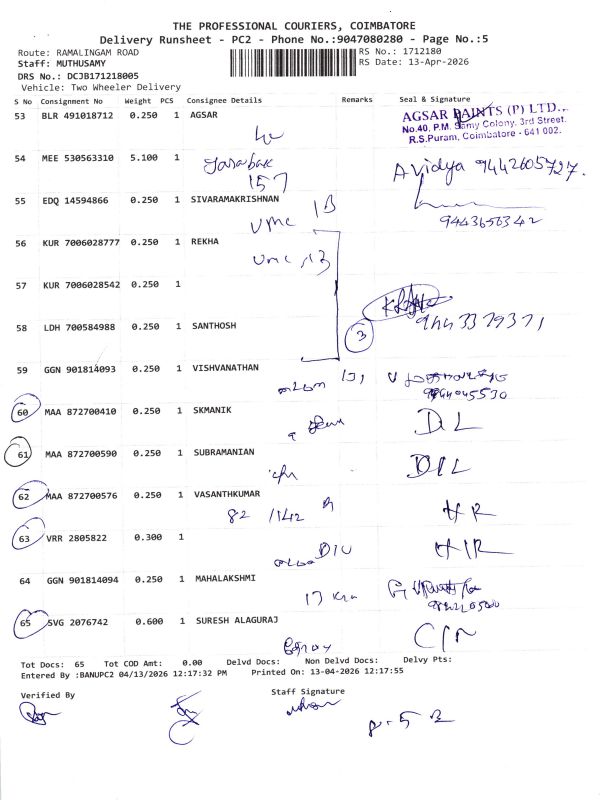 THE PROFESSIONAL COURIERS, COIMBATORE
Delivery Runsheet - PC2 - Phone No.:9047080280 - Page No.:5
Route: RAMALINGAM ROAD
RS No.: 1712180
Staff: MUTHUSAMY
RS Date: 13-Apr-2026
DRS No.: DCJB171218005
Vehicle: Two Wheeler Delivery
S No Consignment No Weight PCS Consignee Details Remarks Seal & Signature
53 BLR 491018712 0.250 1 AGSAR
AGSAR PAINTS (P) LTD..
No.40, P.M. Samy Colony, 3rd Street,
R.S.Puram, Coimbatore - 641 002.
54 MEE 530563310 5.100 1
157
A Vidya 9442605727.
55 EDQ 14594866 0.250 1 SIVARAMAKRISHNAN
UMC 1B
9443656342
56 KUR 7006028777 0.250 1 REKHA
UMC
57 KUR 7006028542 0.250 1
58 LDH 700584988 0.250 1 SANTHOSH
3
59 GGN 901814093 0.250 1 VISHVANATHAN
60 MAA 872700410 0.250 1 SKMANIK
DL
61 MAA 872700590 0.250 1 SUBRAMANIAN
DIL
62 MAA 872700576 0.250 1 VASANTHKUMAR
82 /142
HR
63 VRR 2805822 0.300 1
HR
64 GGN 901814094 0.250 1 MAHALAKSHMI
65 SVG 2076742 0.600 1 SURESH ALAGURAJ
Tot Docs: 65 Tot COD Amt: 0.00 Delvd Docs: Non Delvd Docs: Delvy Pts:
Entered By :BANUPC2 04/13/2026 12:17:32 PM Printed On: 13-04-2026 12:17:55
Verified By
Staff Signature